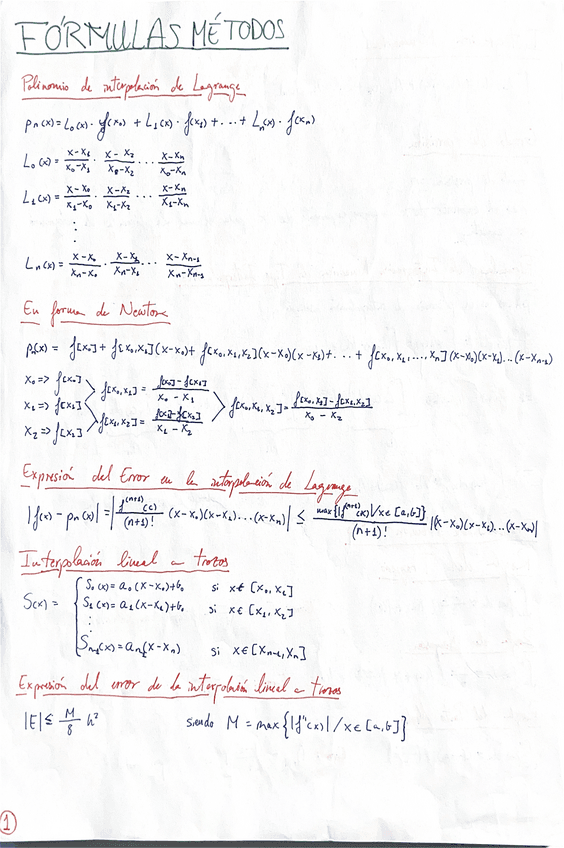 FÓRMULAS MÉTODOS
Polinomio de interpolación de Lagrange
Pn(x) = L₀(x) · f(x₀) + L₁(x) · f(x₁) + ... + Ln(x) · f(xn)
L₀(x) = (x-x₁)/(x₀-x₁) · (x-x₂)/(x₀-x₂) ... (x-xn)/(x₀-xn)
L₁(x) = (x-x₀)/(x₁-x₀) · (x-x₂)/(x₁-x₂) ... (x-xn)/(x₁-xn)
⋮
Ln(x) = (x-x₀)/(xn-x₀) · (x-x₁)/(xn-x₁) ... (x-xn-1)/(xn-xn-1)
En forma de Newton
Pn(x) = f[x₀] + f[x₀,x₁](x-x₀) + f[x₀,x₁,x₂](x-x₀)(x-x₁) + ... + f[x₀,x₁,...,xn](x-x₀)(x-x₁)...(x-xn-1)
x₀ => f[x₀]
f[x₀,x₁] = (f[x₀]-f[x₁])/(x₀-x₁)
x₁ => f[x₁]
f[x₀,x₁,x₂] = (f[x₀,x₁]-f[x₁,x₂])/(x₀-x₂)
f[x₁,x₂] = (f[x₁]-f[x₂])/(x₁-x₂)
x₂ => f[x₂]
Expresión del Error en la interpolación de Lagrange
|f(x) - pn(x)| = |f⁽ⁿ⁺¹⁾(c)/(n+1)! (x-x₀)(x-x₁)...(x-xn)| ≤ max{|f⁽ⁿ⁺¹⁾(x)|/x∈[a,b]}/(n+1)! |(x-x₀)(x-x₁)...(x-xn)|
Interpolación lineal a trozos
S(x) = {
S₀(x) = a₀(x-x₀)+b₀ si x∈[x₀,x₁]
S₁(x) = a₁(x-x₁)+b₁ si x∈[x₁,x₂]
⋮
Sn-1(x) = an-1(x-xn) si x∈[xn-1,xn]
Expresión del error de la interpolación lineal a trozos
|E| ≤ M/8 h² siendo M = max{|f''(x)| / x∈[a,b]}
1